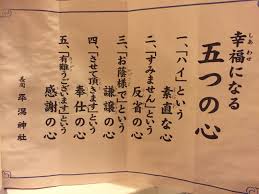 しあわせ
幸福になる
五つの心
一、「ハイ」という
素直な心
二、「すみません」という
反省の心
三、「お陰様で」という
謙譲の心
四、「させて頂きます」という
奉仕の心
五、「有難うございます」という
感謝の心
長岡 平潟神社